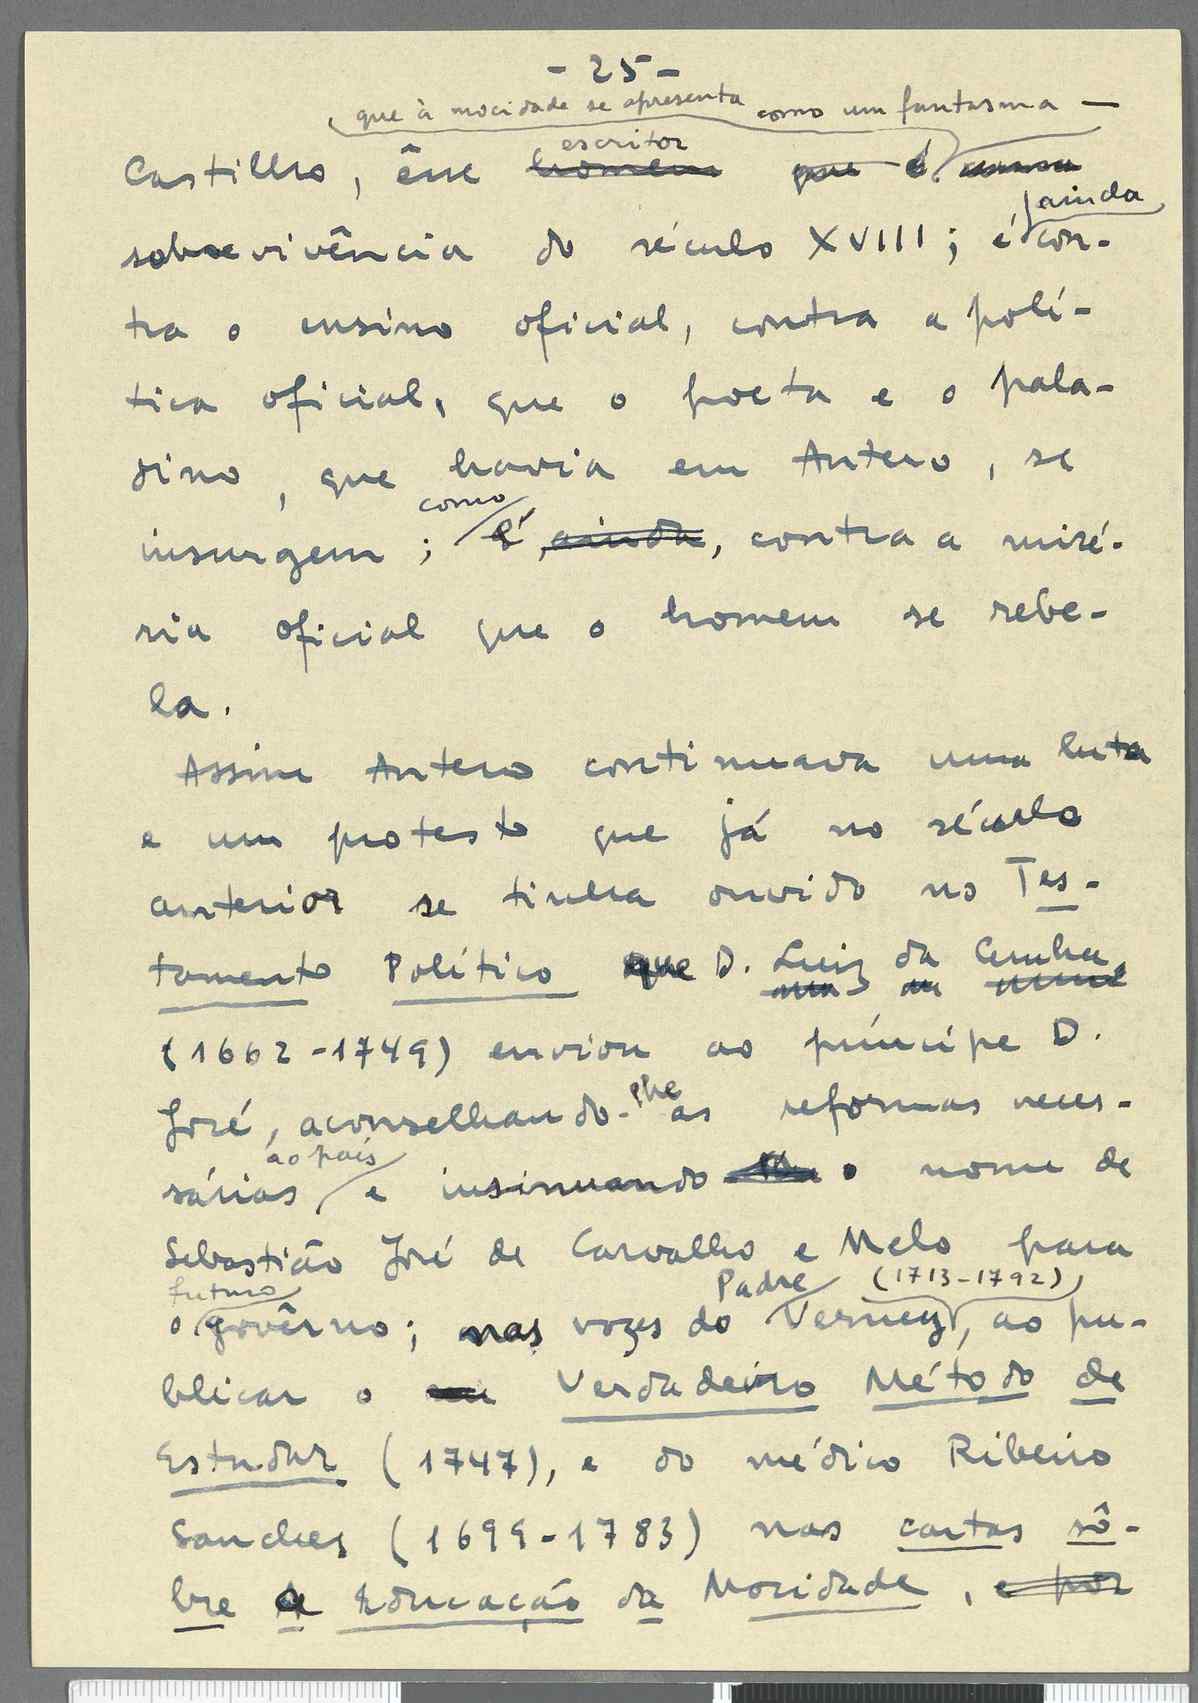 - 25 -
que à mocidade se apresenta como um fantasma —
escritor
Castilho, êsse homem que é uma
ainda
sobrevivência do século XVIII; é con-
tra o ensino oficial, contra a polí-
tica oficial, que o poeta e o pala-
dino, que havia em Antero, se
como
insurgem; é, ainda, contra a misé-
ria oficial que o homem se rebe-
la.
Assim Antero continuava uma luta
e um protesto que já no século
anterior se tinha ouvido no Tes-
tamento Político que D. Luiz da Cunha
(1662-1749) enviou ao príncipe D.
José, aconselhando-lhe as reformas neces-
ao país
sárias e insinuando o nome de
Sebastião José de Carvalho e Melo para
futuro Padre (1713-1792)
o govêrno; nas vozes do Verney, ao pu-
blicar o Verdadeiro Método de
Estudar (1747), e do médico Ribeiro
Sanches (1699-1783) nas cartas sô-
bre a Educação da Mocidade, e por